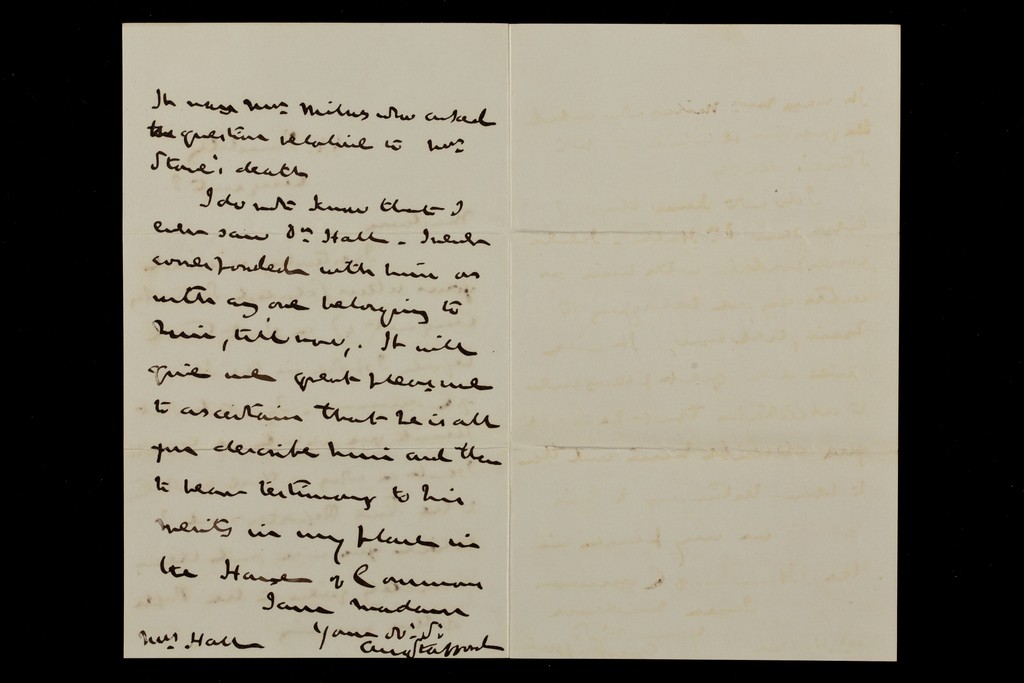 It was Mrs. Milnes who asked
the question relative to Mrs.
Stone's death
I do not know that I
ever saw Dr. Hall - I never
corresponded with him or
with any one belonging to
him, till now, . It will
give me great pleasure
to ascertain that he is all
you describe him and then
to bear testimony to his
merits in my place in
the House of Commons
I am Madam
Your
Aug Stafford
Mrs. Hall